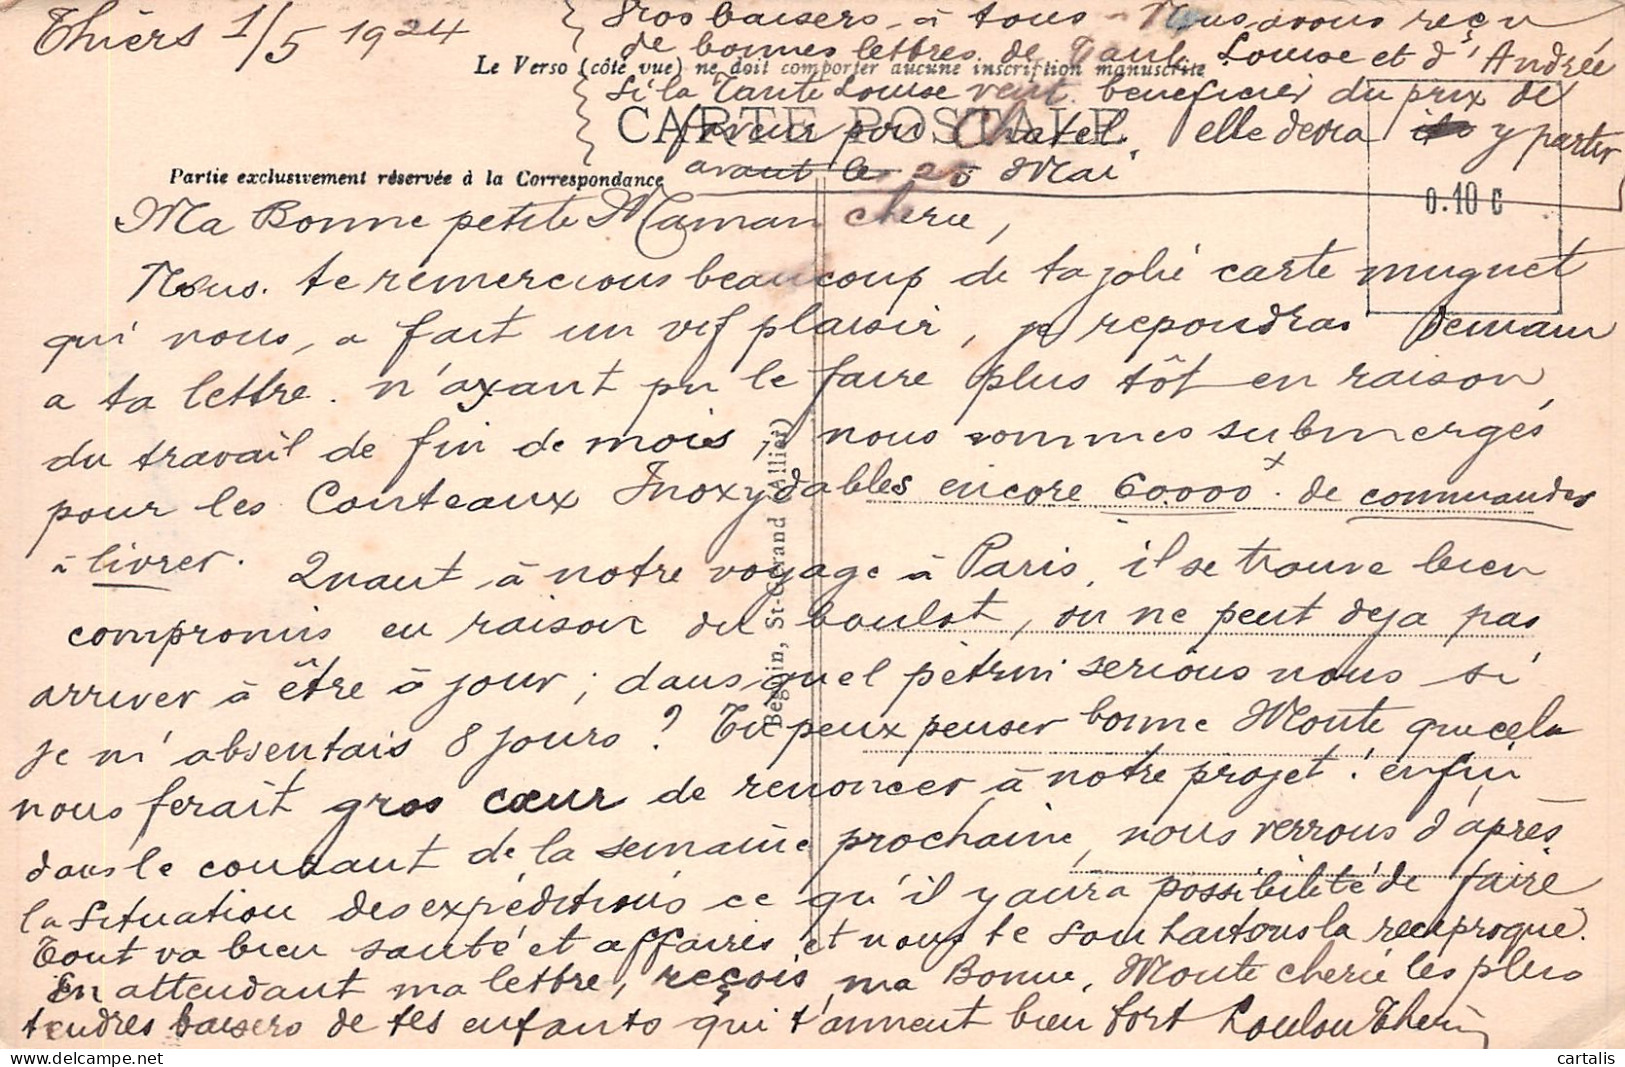 Thiers 1/5 1924
Gros baisers à tous - Nous avons reçu
de bonnes lettres de Tante Louise et d'Andrée
Le Verso (côté vue) ne doit comporter aucune inscription manuscrite
Si la Tante Louise veut beneficier du prix de
CARTE POSTALE
faveur pour Chatel elle devra y partir
avant le 25 Mai
Partie exclusivement réservée à la Correspondance
0.10 c
Ma Bonne petite Maman cherie,
Nous te remercions beaucoup de ta jolie carte muguet
qui nous, a fait un vif plaisir, je repondrai Demain
a ta lettre. n'ayant pu le faire plus tôt en raison
du travail de fin de mois, nous sommes submergés
pour les Couteaux Inoxydables encore 60000 x de commandes
à livrer. Quant à notre voyage à Paris, il se trouve bien
compromis en raison du boulot, on ne peut deja pas
arriver à être à jour; dans quel pétrin serions nous si
je m'absentais 8 jours? Tu peux penser bonne Moute que cela
nous ferait gros cœur de renoncer à notre projet! enfin
dans le courant de la semaine prochaine, nous verrons d'après
la situation des expéditions ce qu'il y aura possibilité de faire
Tout va bien santé et affaires et nous te souhaitons la reciproque.
En attendant ma lettre, reçois ma Bonne Moute cherie les plus
tendres baisers de tes enfants qui t'aiment bien fort Loulou Theri
Béguin, St-Gérand (Allier)
cartalis